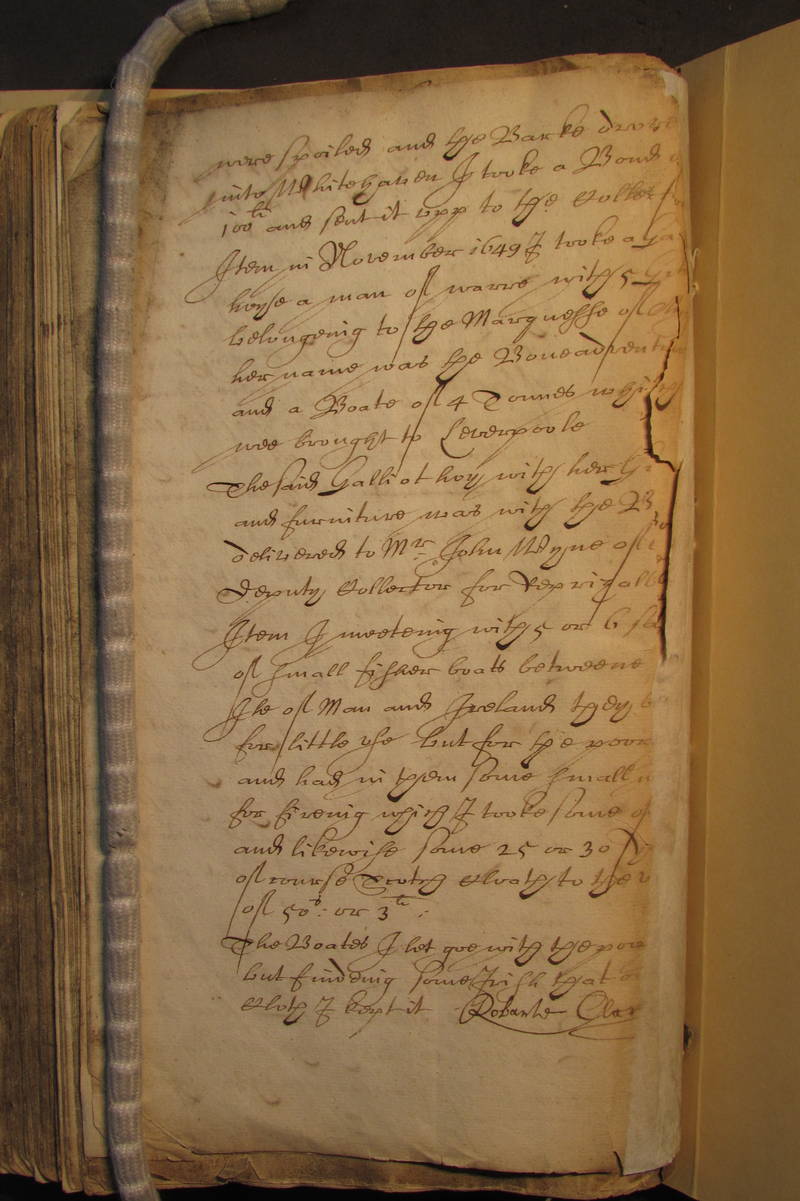 were spoiled and the Barke drove
into Whitehaven I tooke a Bond
100li and sent it upp to the Collect
Item in November 1649 I tooke a Ga
hoyse a man of warre with 5
belongeing to the Marquesse of
her name was the Boneadventu
and a Boate of 4 Tonnes which
wee brought to Leverpoole
The said Galliot hoy with her G
and furniture was with the B
delivered to Mr. John Wyne of
Deputy Collector for Reprizall
Item I meeteing with 5 or 6
of small fisher boats betweene
Ile of Man and Ireland they
for little use but for the poor
and had in them some small
for fireing which I tooke some of
and likewise some 25 or 30
of course Scotch Cloath to the v
of 50s: or 3li:
The Boates I let goe with the poor
but findeing some Irish that
Cloth I kept it Robarte Clar